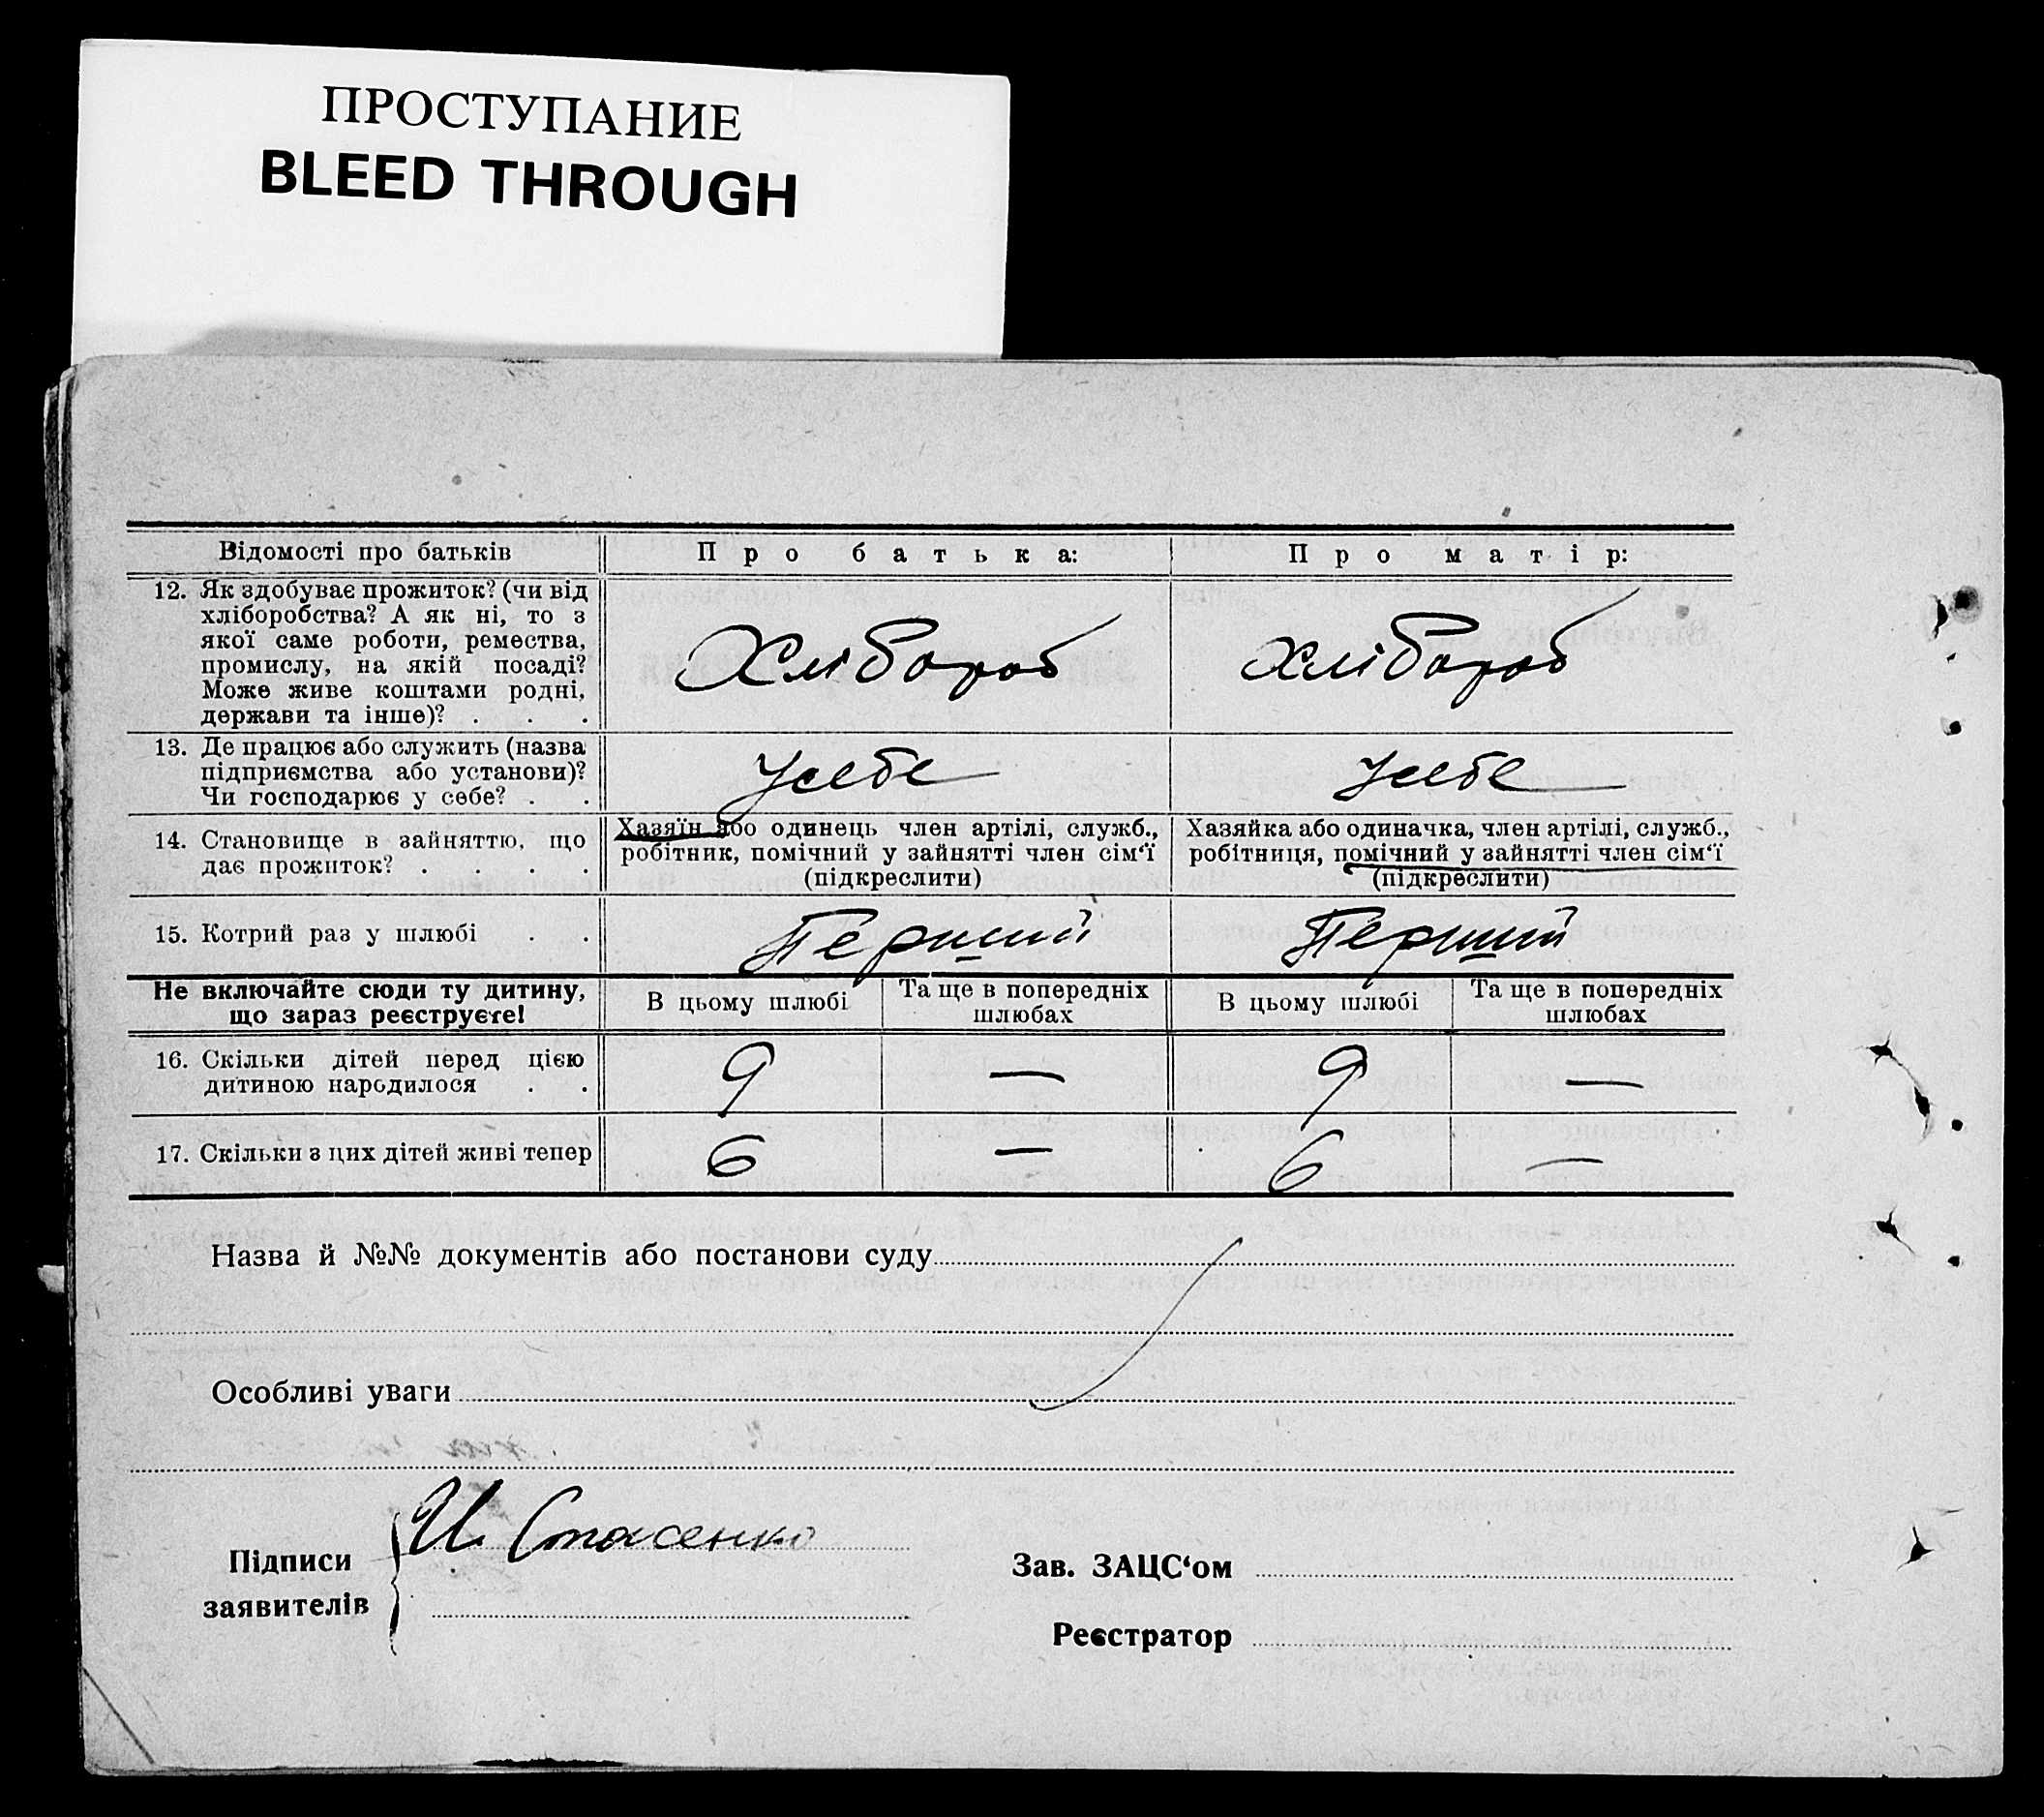 ПРОСТУПАНИЕ
BLEED THROUGH
Відомості про батьків Про батька: Про матір:
12. Як здобуває прожиток? (чи від
хліборобства? А як ні, то з
якої саме роботи, ремества,
промислу, на якій посаді?
Може живе коштами родні,
держави та інше)? . . .
Хлібороб Хлібороб
13. Де працює або служить (назва
підприємства або установи)?
Чи господарює у себе? . .
Усебе Усебе
14. Становище в зайняттю, що
дає прожиток? . . . .
Хазяїн або одинець член артілі, служб.,
робітник, помічний у зайнятті член сім‘ї
(підкреслити)
Хазяйка або одиначка, член артілі, служб.,
робітниця, помічний у зайнятті член сім‘ї
(підкреслити)
15. Котрий раз у шлюбі . . Перший Перший
Не включайте сюди ту дитину,
що зараз реєструєте!
В цьому шлюбі Та ще в попередніх
шлюбах
В цьому шлюбі Та ще в попередніх
шлюбах
16. Скільки дітей перед цією
дитиною народилося . .
9 — 9 —
17. Скільки з цих дітей живі тепер 6 — 6 —
Назва й №№ документів або постанови суду
Особливі уваги
Підписи
заявителів
И. Стасенко
Зав. ЗАЦС‘ом
Реєстратор